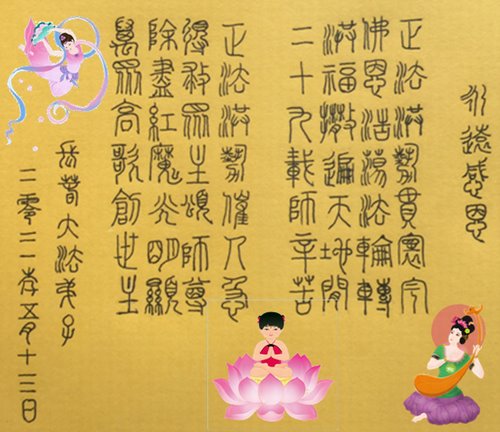 永遠感恩
正法洪勢貫寰宇
佛恩浩蕩法輪轉
洪福撒遍天地間
二十九載師辛苦
正法洪勢催人急
得救眾生頌師尊
除盡紅魔光明顯
萬眾高歌創世主
長春大法弟子
二零二一年五月十三日